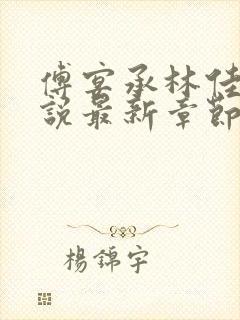 傅宴承林佳
說最新章節
楊錦宇